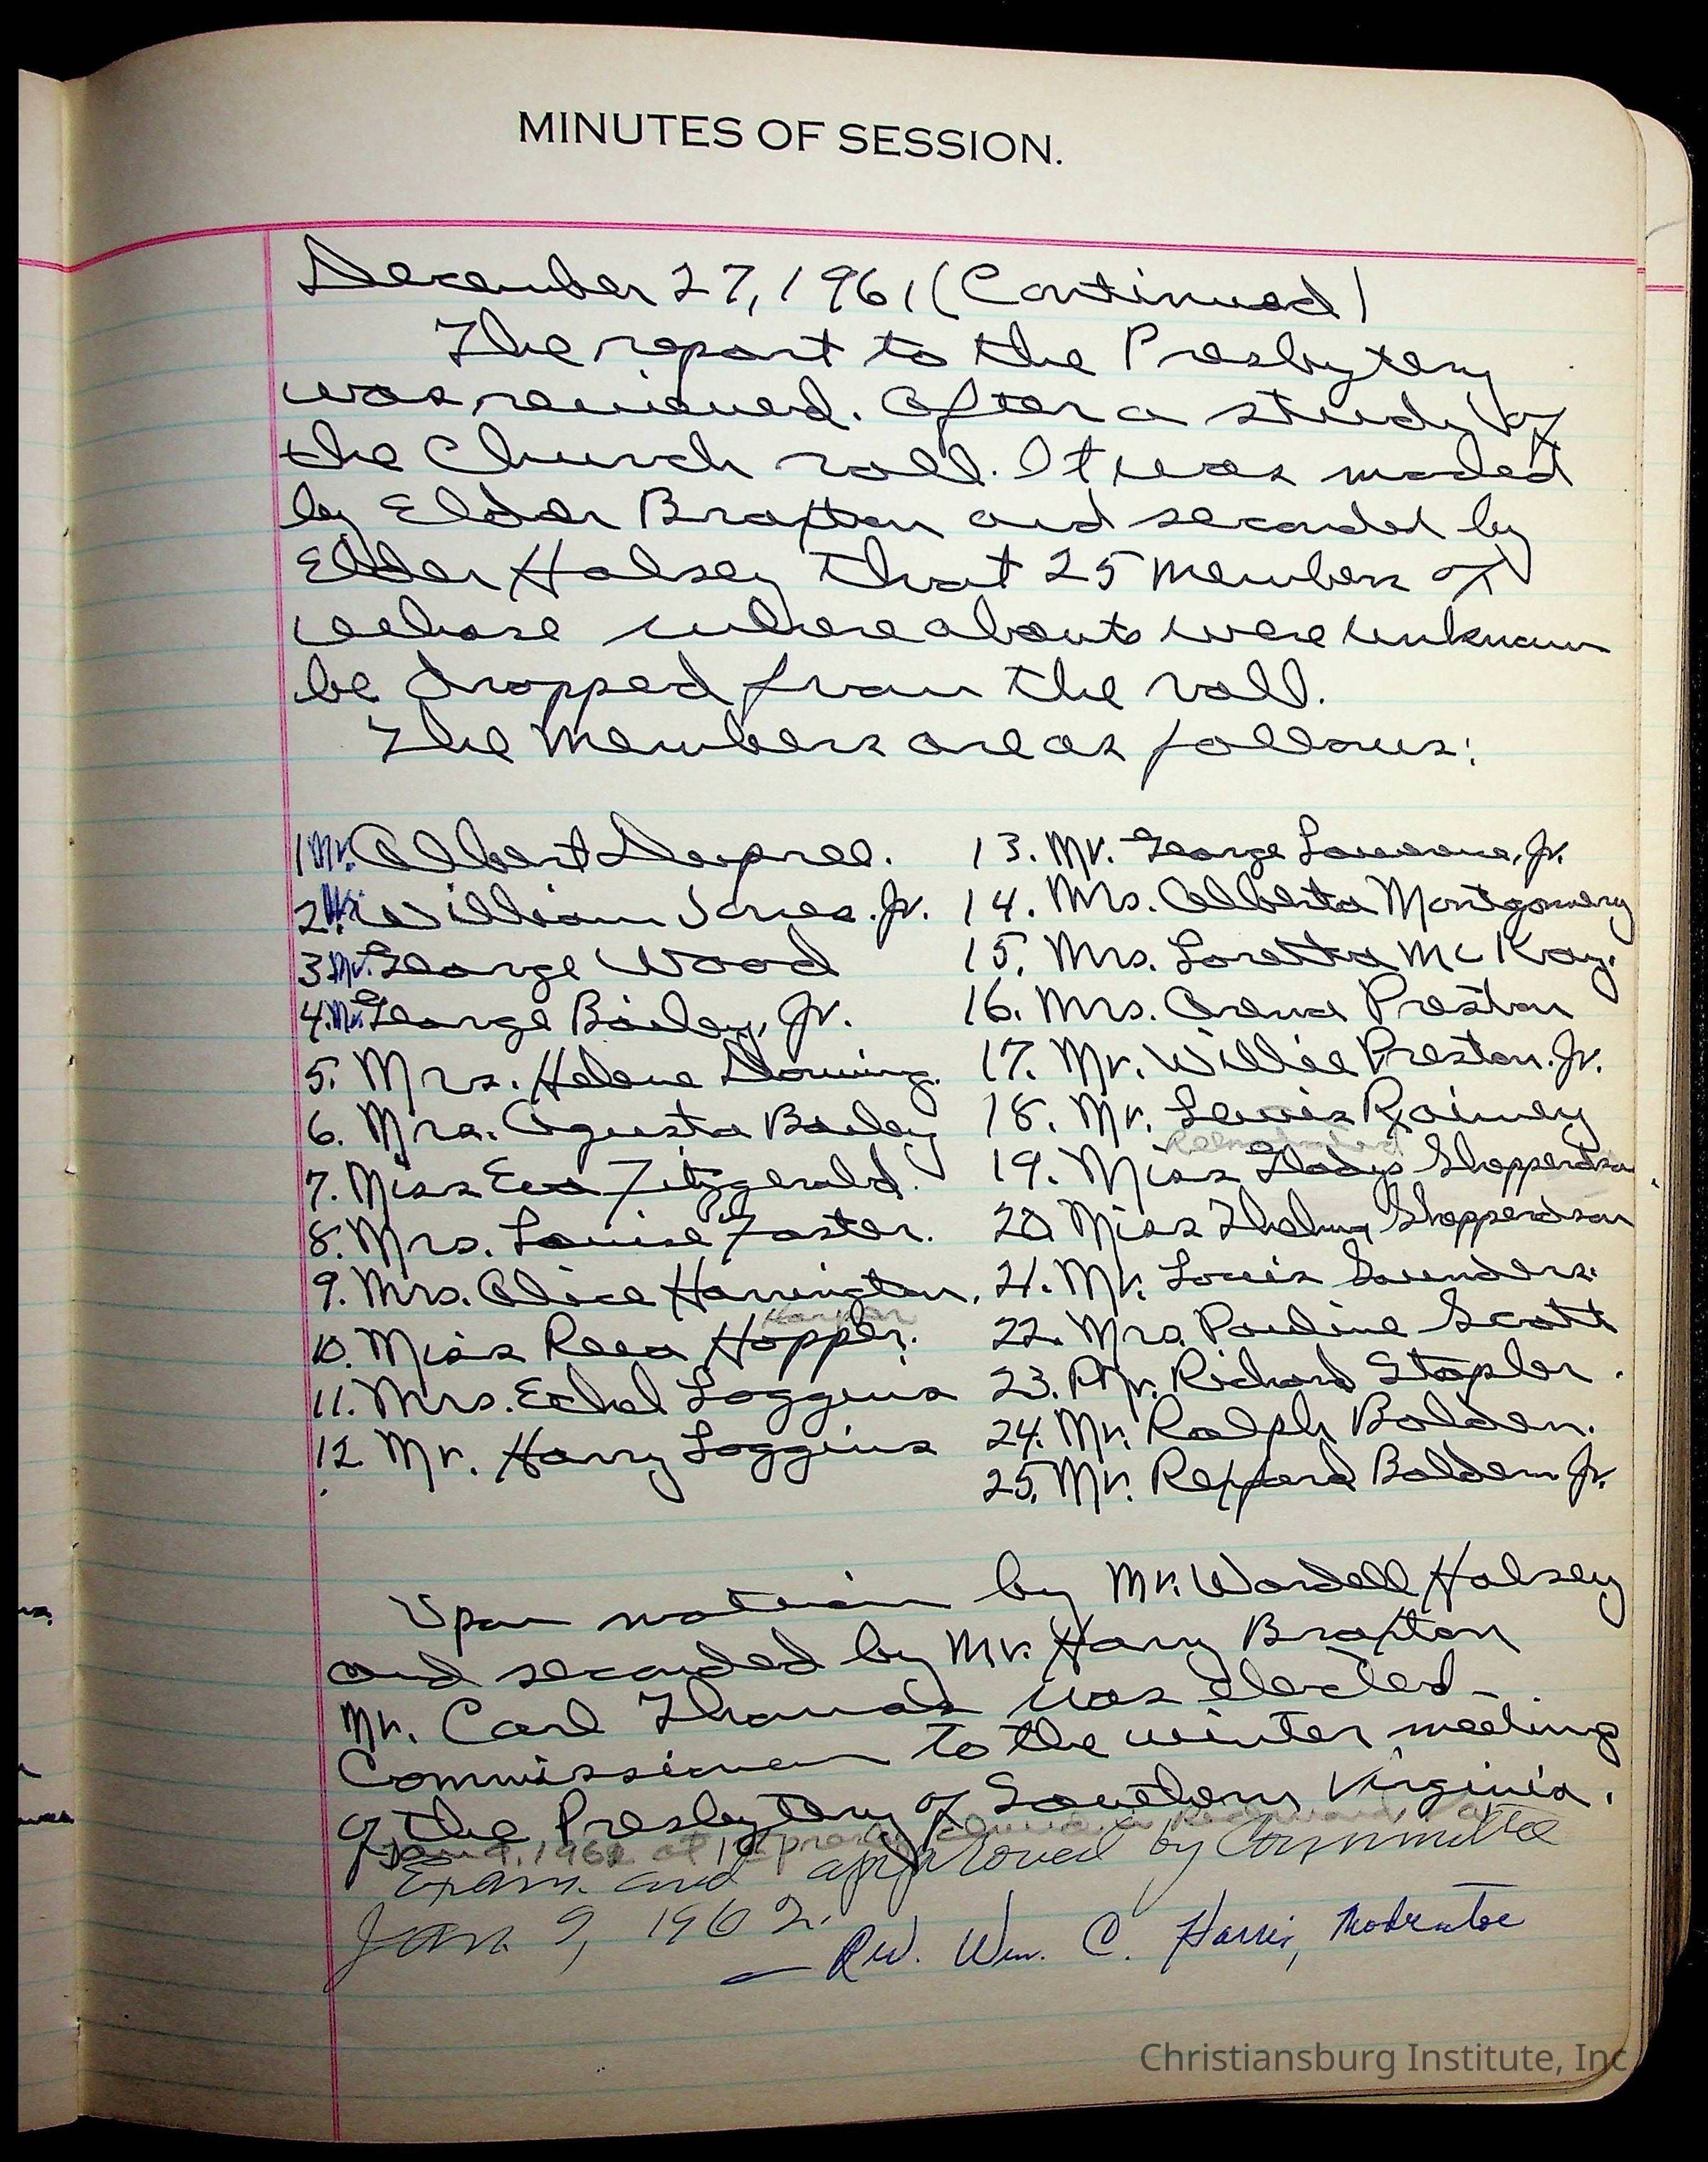 MINUTES OF SESSION.
December 27, 1961 (Continued)
The report to the Presbytery
was reviewed. After a study of
the Church roll. It was moded
by Elder Braxton and seconded by
Elder Halsey that 25 members of
whose whereabouts were unknown
be dropped from the roll.
The Members are as follows:
1 Mr. Albert Dupree.
2 Mr. William Jones. Jr.
3 Mr. George Wood
4. Mr. George Bailey, Jr.
5. Mrs. Helene Downing.
6. Mrs. Agusta Bailey
7. Miss Eva Fitzgerald.
8. Mrs. Louise Foster.
9. Mrs. Alice Harrington,
Harper
10. Miss Reea Hopper.
11. Mrs. Echel Loggins
12 Mr. Harry Loggins
13. Mr. George Lawrence, Jr.
14. Mrs. Alberta Montgomery
15. Mrs. Loretta McKay.
16. Mrs. Arena Preston
17. Mr. Willie Preston. Jr.
18. Mr. Lewis Rainey
19. Miss Gladys Shepperdson
20 Miss Thelma Shepperdson
21. Mr. Louis Saunders.
22. Mrs. Pauline Scott
23. Mr. Richard Stapler.
24. Mr. Ralph Bolden.
25. Mr. Reppard Boldem Jr.
Upon motion by Mr. Wardell Halsey
and seconded by Mr. Harry Braxton
Mr. Carl Thomas was elected
Commissioner to the winter meeting
of the Presbytery of Southern Virginia.
1962 at
Exam. and approved by Committee
Jan. 9, 1962.
— Rev. Wm. C. Harris, Moderator
Christiansburg Institute, Inc